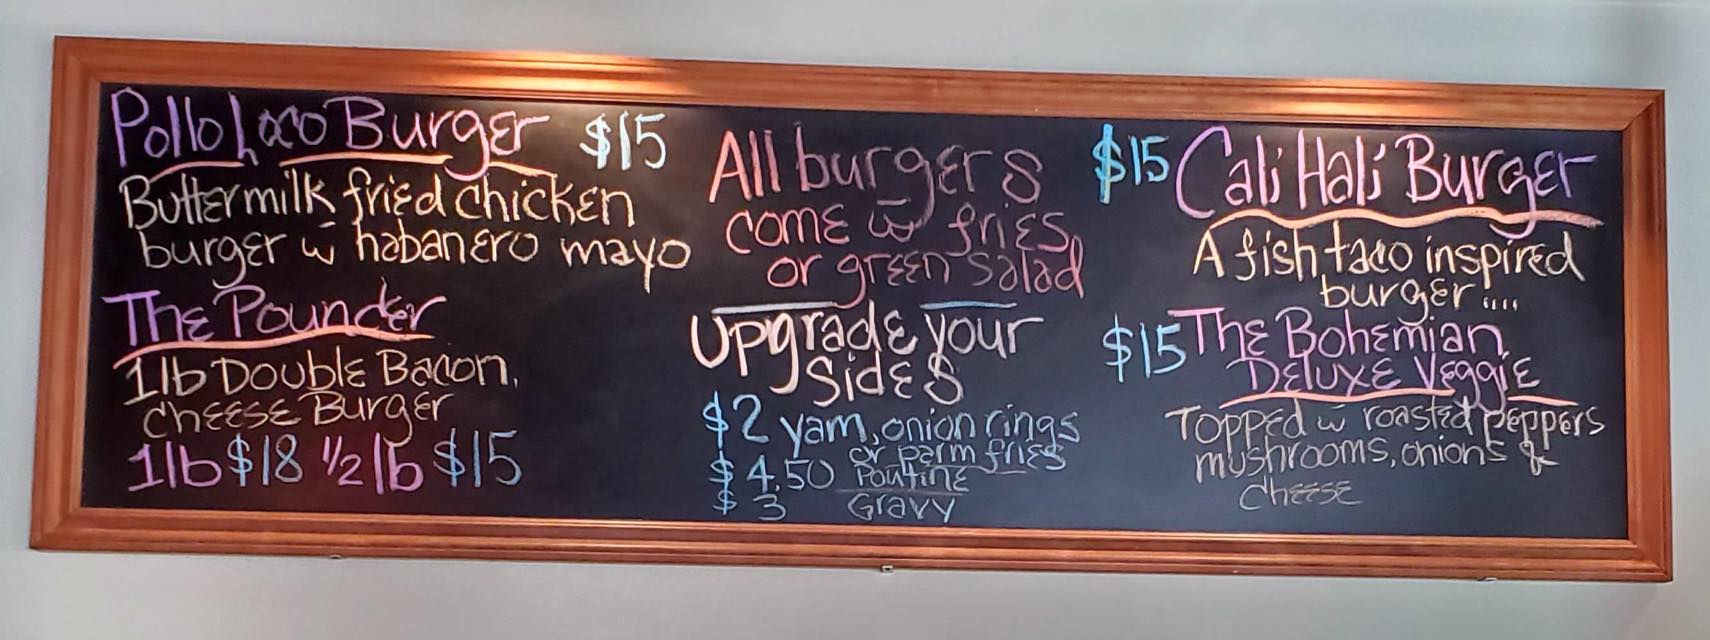 Pollo Loco Burger $15
Buttermilk fried chicken
burger w̄ habanero mayo
The Pounder
1lb Double Bacon,
Cheese Burger
1lb $18 1/2 lb $15
All burgers
come w̄ fries
or green salad
Upgrade your
Sides
$2 yam, onion rings
or parm fries
$4.50 Poutine
$3 Gravy
$15 Cali Hali Burger
A fish taco inspired
burger ....
$15 The Bohemian
Deluxe Veggie
Topped w̄ roasted peppers
mushrooms, onions &
Cheese